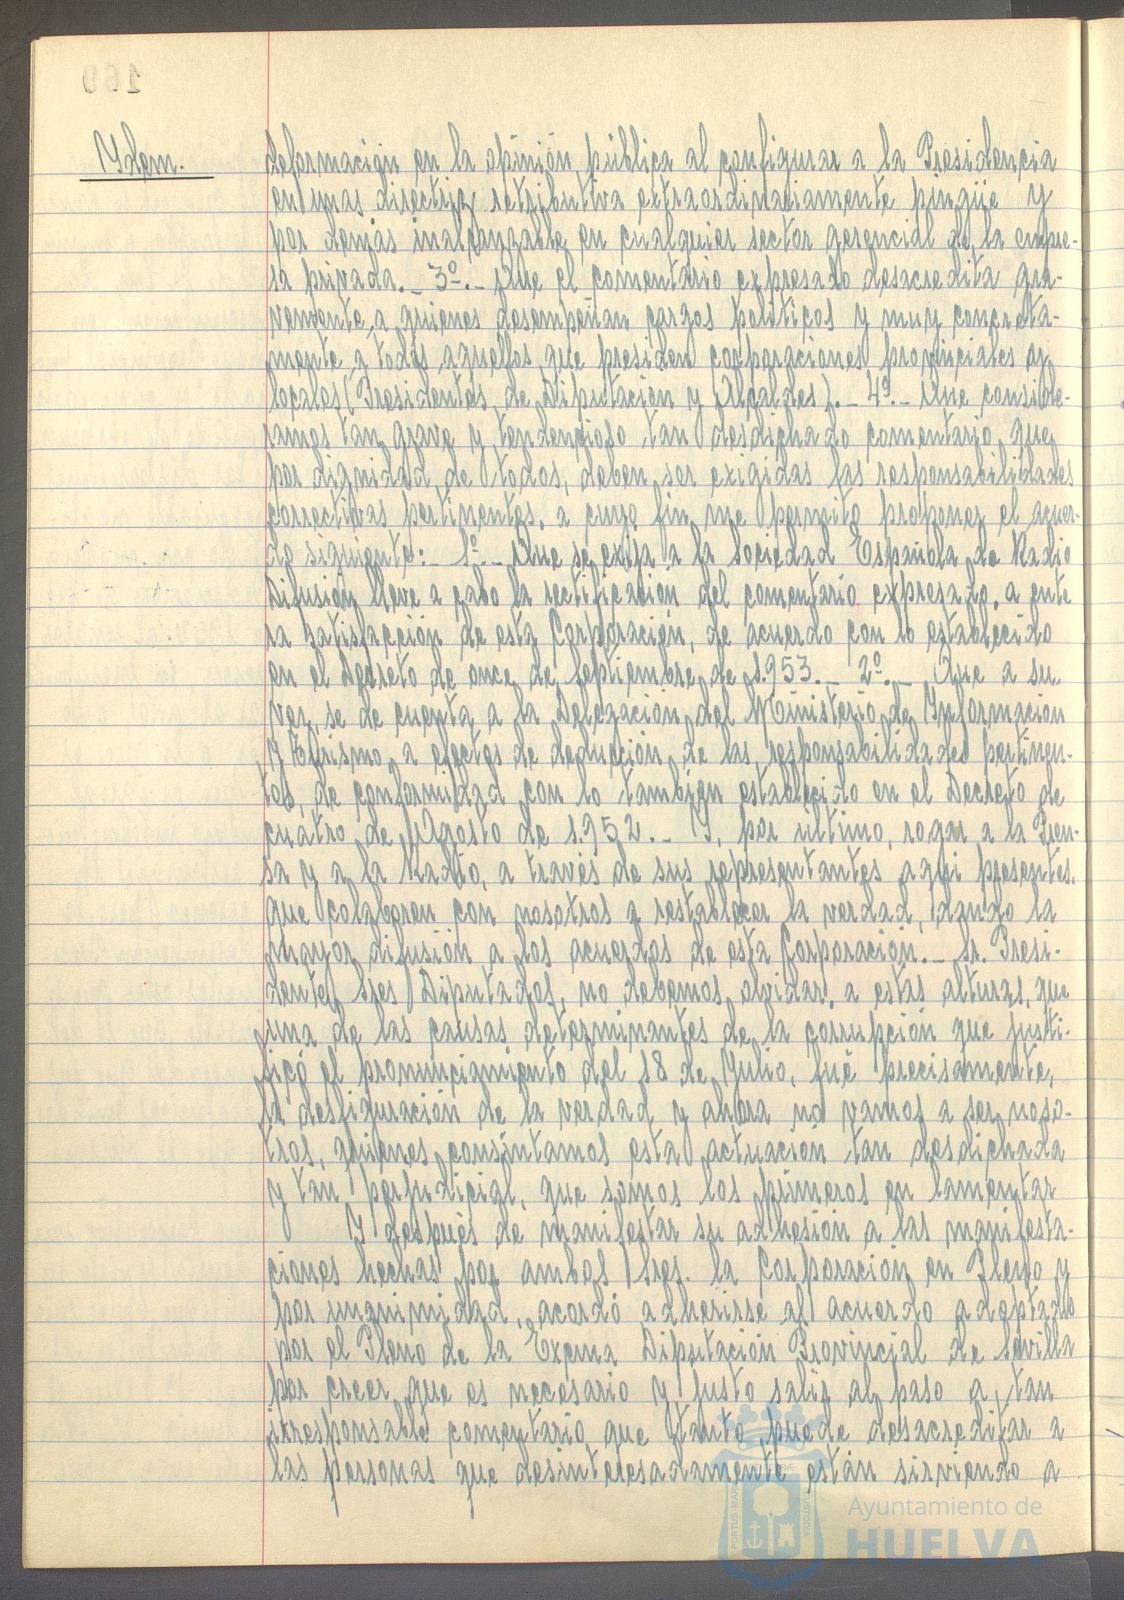 169
Ydem.
deformación en la opinión pública al configurar a la Presidencia
en unas directriz retributiva extraordinariamente pingüe y
por demás inalcanzable en cualquier sector gerencial de la empre-
sa privada.- 3º.- Que el comentario expresado desacredita gra-
vemente a quienes desempeñan cargos políticos y muy concreta-
mente a todos aquellos que presiden corporaciones provinciales y
locales (Presidentes de Diputación y Alcaldes).- 4º.- Que conside-
ramos tan grave y tendencioso tan desdichado comentario que
por dignidad de todos, deben ser exigidas las responsabilidades
correctivas pertinentes, a cuyo fin me permito proponer el acuer-
do siguiente:- 1º.- Que se exija a la Sociedad Española de Radio
Difusión lleve a cabo la rectificación del comentario expresado, a ente
ra satisfacción de esta Corporación, de acuerdo con lo establecido
en el Decreto de once de Septiembre de 1.953.- 2º.- Que a su
vez, se de cuenta a la Delegación del Ministerio de Información
y Turismo a efectos de deducción de las responsabilidades pertinen-
tes, de conformidad con lo también establecido en el Decreto de
cuatro de Agosto de 1.952.- Y, por último, rogar a la Pren-
sa y a la Radio, a través de sus representantes aquí presentes.
que colaboren con nosotros a restablecer la verdad, dando la
mayor difusión a los acuerdos de esta Corporación.- Sr. Presi-
dente, Sres Diputados, no debemos olvidar, a estas alturas, que
una de las causas determinantes de la corrupción que justi-
ficó el pronunciamiento del 18 de Julio, fué precisamente,
la desfiguración de la verdad y ahora no vamos a ser noso-
tros, quienes consintamos esta actuación tan desdichada
y tan perjudicial, que somos los primeros en lamentar
Y después de manifestar su adhesión a las manifesta-
ciones hechas por ambos Sres. la Corporación en Pleno y
por unanimidad, acordó adherirse al acuerdo adoptado
por el Pleno de la Excma Diputación Provincial de Sevilla
por creer que es necesario y justo salir al paso a tan
irresponsable comentario que tanto puede desacreditar a
las personas que desinteresadamente están sirviendo a
Ayuntamiento de
HUELVA